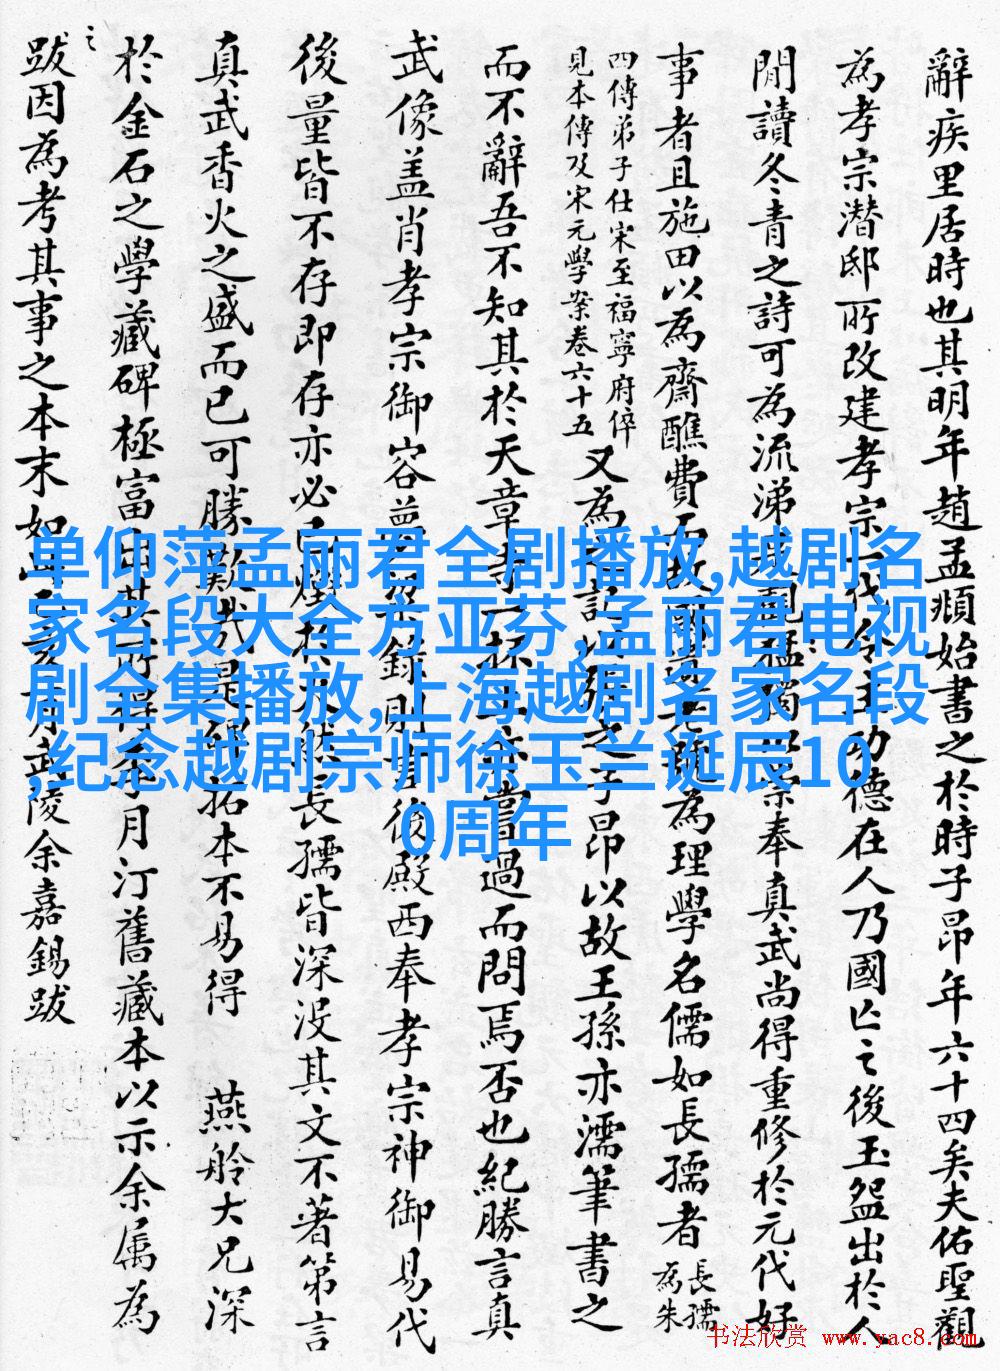 辭疾里居時也其明年趙孟頫始書之於時子昂年六十四矣夫佑聖觀
為孝宗潛邸所改建孝宗一代令主功德在人乃國亡之後玉盌出於人
閒讀冬青之詩可為流涕觀獨以崇奉真武尚得重修於元代好
事者且施田以為齋醮費而為理學名儒如長孺者
長孺
為朱
四傳弟子仕宋至福寧府倅
見本傳及宋元學案卷六十五
又為之記以之子昂以故王孫亦濡筆書之
而不辭吾不知其於天章寺一抔土亦嘗過而問焉否也紀勝言真
武像盖肖孝宗御容夢錄則言後殿西奉孝宗神御易代
後量皆不存即存亦必已燬於火然長孺皆深没其文不著第言
真武香火之盛而已可勝歎哉是碑拓本不易得 燕舲大兄深
於金石之學藏碑極富出其所得余月汀舊藏本以示余属為
之
跋因為考其事之本末如此月武陵余嘉錫跋
单仰萍孟丽君全剧播放,越剧名
家名段大全方亚芬,孟丽君电视
剧全集播放,上海越剧名家名段
,纪念越剧宗师徐玉兰诞辰10
0周年
书法欣赏 www.yac8.com